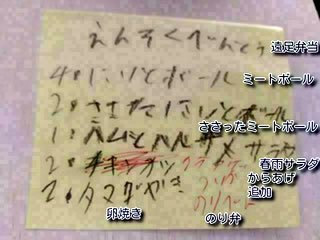 えんそくべんとう
遠足弁当
4:にくとボール
ミートボール
2:ささたにくとボール
ささったミートボール
1:ハムとハルサメサラダ
春雨サラダ
からあげ
追加
2:タマゴやき
卵焼き
のりべん
のり弁